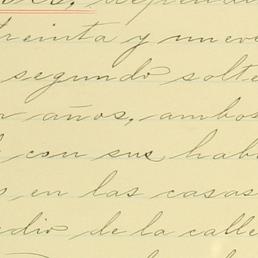 treinta y nueve
segundo solte
años, ambos
con sus habi
en las casas
dio de la calle